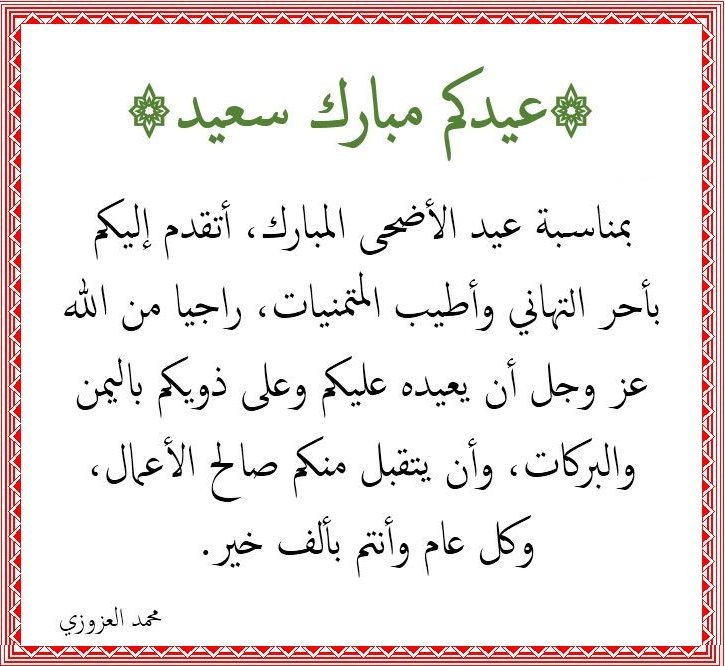 عيدكم مبارك سعيد
بمناسبة عيد الأضحى المبارك، أتقدم إليكم
بأحر التهاني وأطيب المتمنيات، راجيا من الله
عز وجل أن يعيده عليكم وعلى ذويكم باليمن
والبركات، وأن يتقبل منكم صالح الأعمال،
وكل عام وأنتم بألف خير.
محمد العزوزي